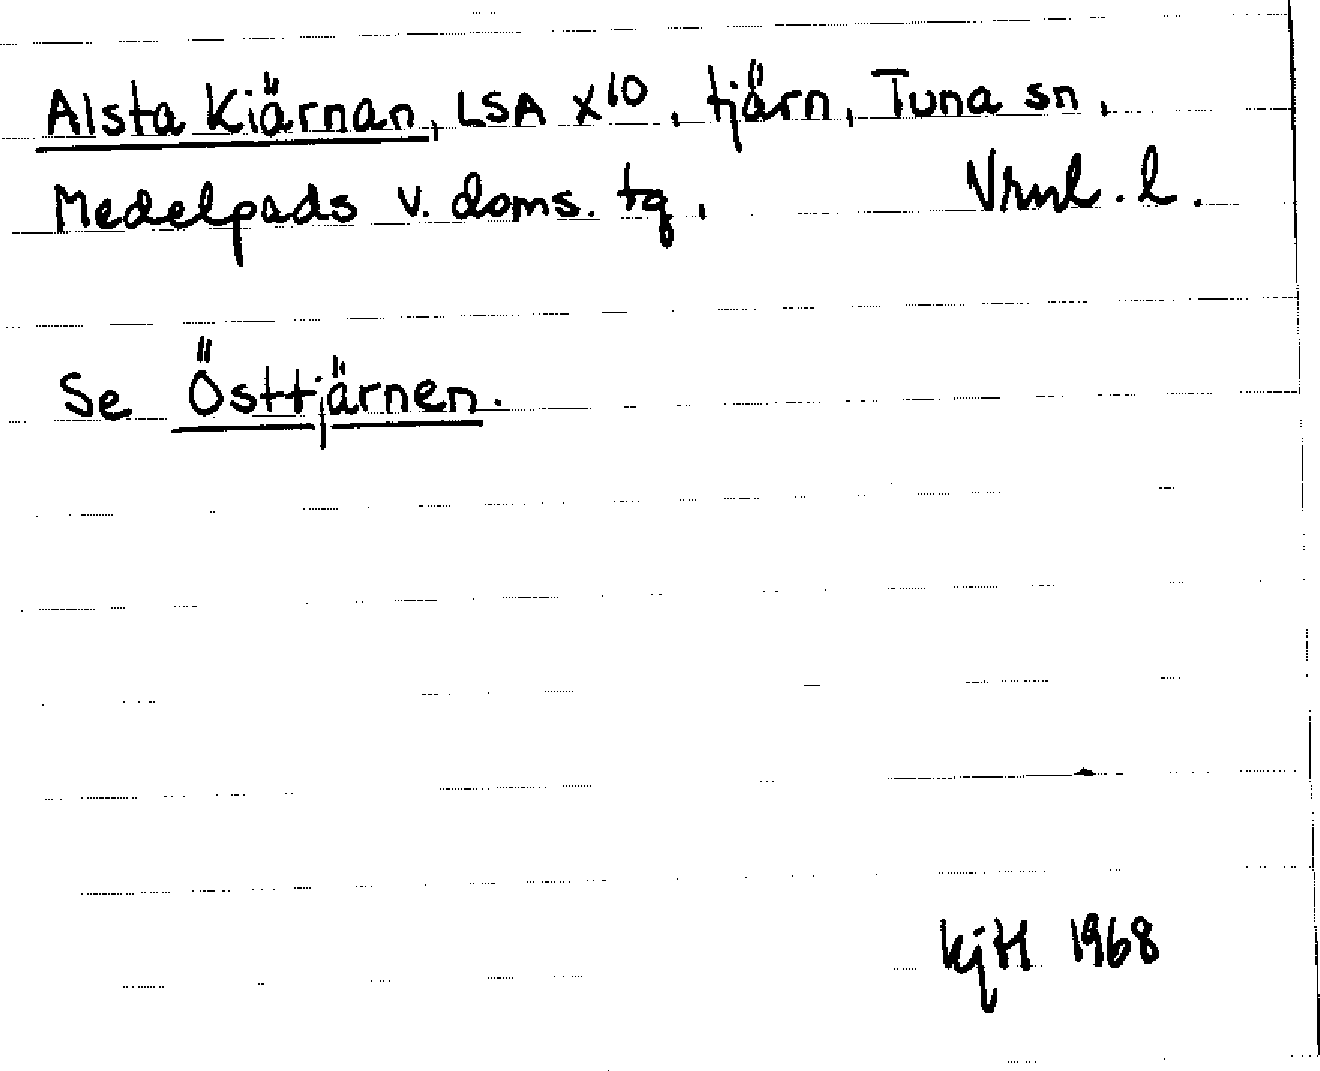 Alsta Kiärnan, LSA X10, tjärn, Tuna sn,
Medelpads v. doms. tg, Vrnl. l.
Se Östtjärnen.
KjH 1968